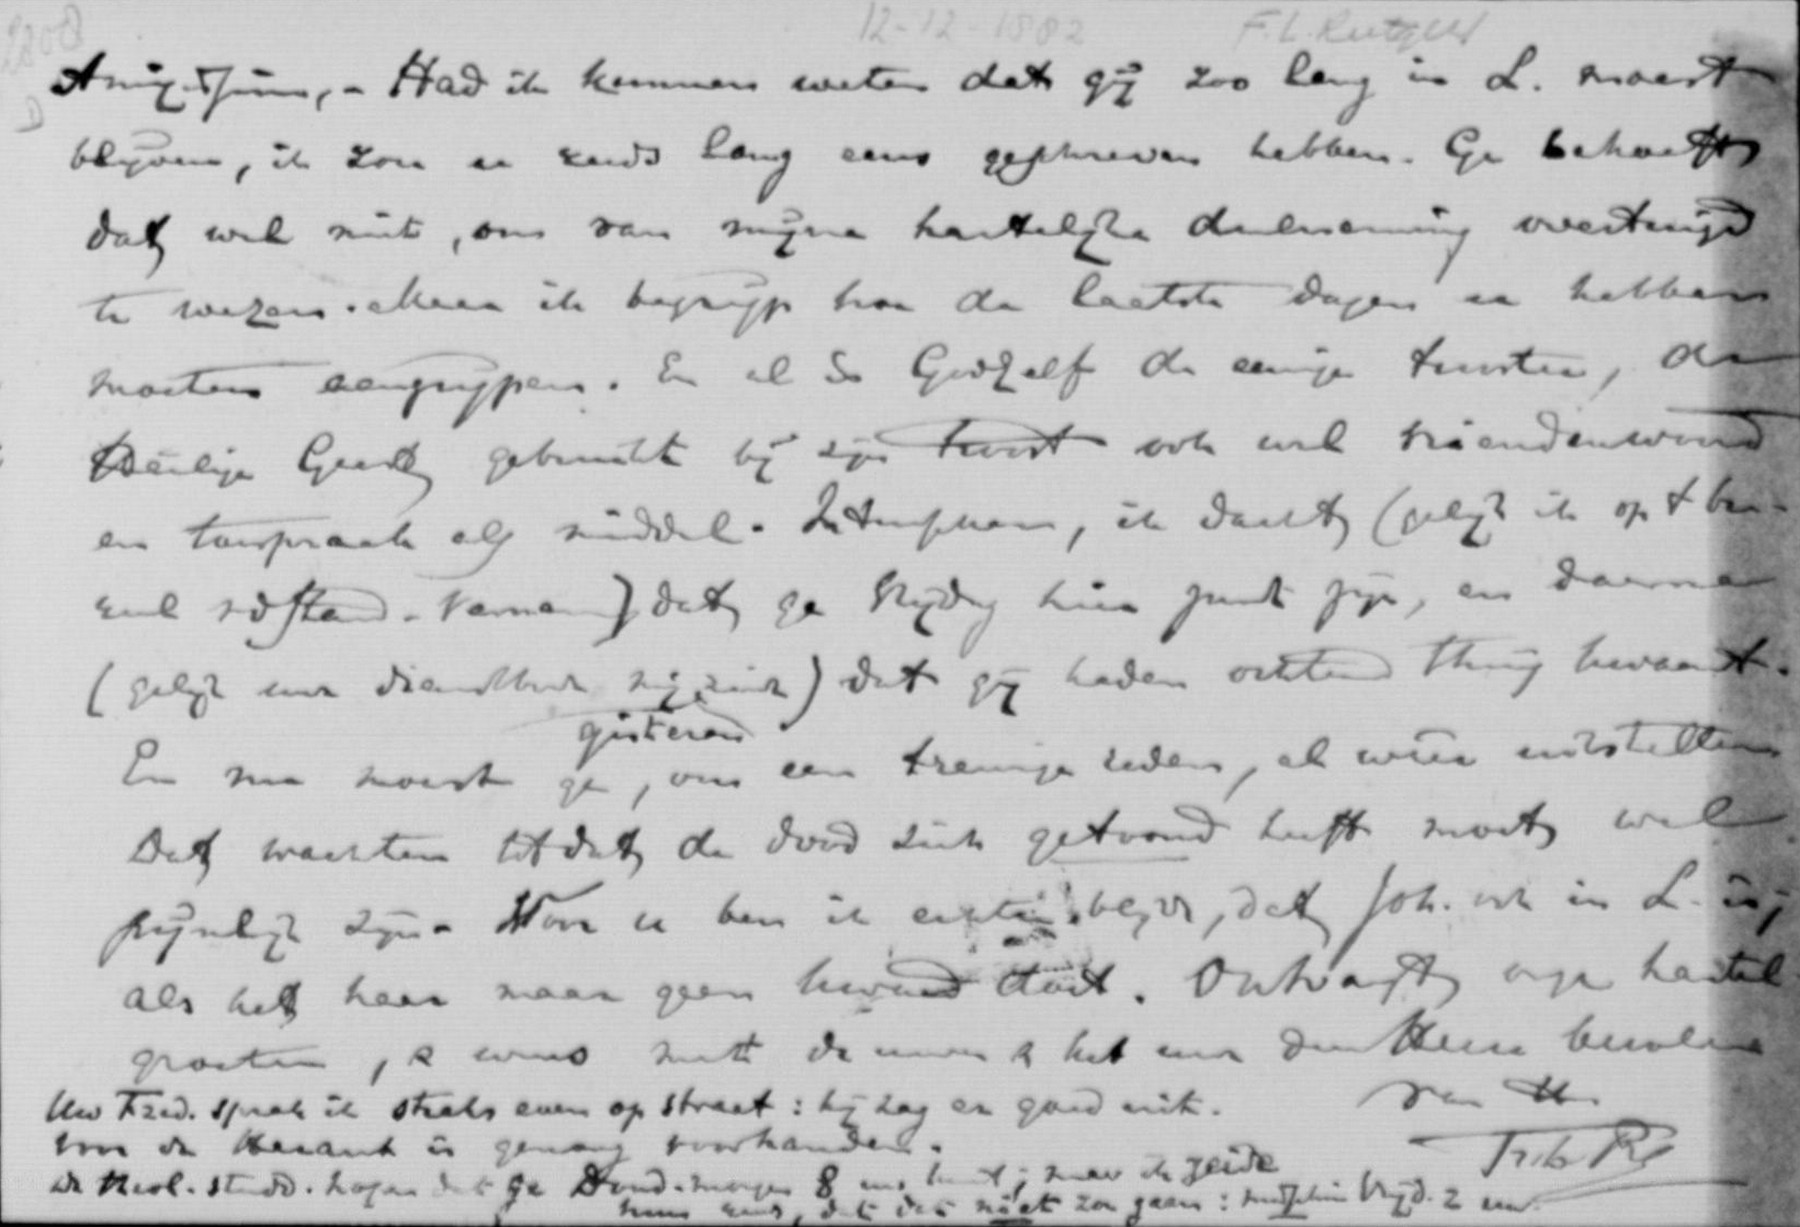 12-12-1882 F.L. Rutgers
Amicissime, - Had ik kunnen weten dat gij zoo lang in L. moest
blijven, ik zou u reeds lang eens geschreven hebben. Ge behoeft
dat wel niet, om van mijne hartelijke deelneming overtuigd
te wezen. Maar ik begrijp hoe de laatste dagen u hebben
moeten aangrijpen. En al is God zelf de eenige trooster, de
Heilige Geest gebruikt bij zijn troost ook wel vriendenwoord
en toespraak als middel. Intusschen, ik dacht (gelijk ik op 't
dat ge Vrijdag hier zoudt zijn, en daarna
(gelijk uw dienstbode mij zeide) dat gij heden ochtend thuis kwaamt.
gisteren
En nu moest ge, om een treurige reden, al weer uitstellen
Dat wachten totdat de dood zich getoond heeft moet wel
pijnlijk zijn. Voor u ben ik echter blijde, dat Joh. ook in L. is;
als het haar maar geen kwaad doet. Ontvangt mijn hartel.
groeten, & wees met de uwen & het uwe den Heere bevolen
Uw Fred. sprak ik straks even op straat: hij zag er goed uit. van Uw
voor de Heraut is genoeg voorhanden.
de theol. studd. hopen dat ge Dond. morgen 8 uur komt; maar ik zeide
hun reeds, dat dat niet zou gaan: misschien Vrijd. 2 uur.